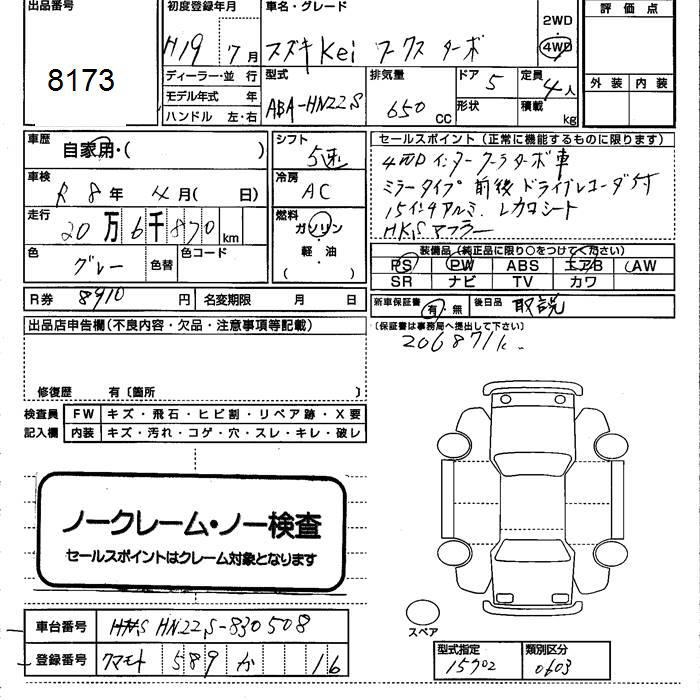 出品番号
8173
初度登録年月
H19 7月
車名・グレード
スズキ Kei ワークス ターボ
2WD
4WD
評価点
外装 内装
ディーラー・並行
モデル年式 年
ハンドル 左・右
型式
ABA-HN22S
排気量
650 CC
ドア 5
形状
定員 4人
積載 kg
車歴
自家用・( )
シフト
5速
セールスポイント(正常に機能するものに限ります)
4WD インタークーラターボ車
ミラータイプ 前後 ドライブレコーダ付
15インチアルミ、レカロシート
HKSマフラー
車検
R 8年 4月( 日)
冷房
AC
走行
20万6千870km
燃料
ガソリン
軽・油
( )
色
グレー
色替
色コード
装備品(純正品に限り○をつけてください)
PS PW ABS エアB AW
SR ナビ TV カワ
R券 8910円
名変期限 月 日
新車保証書
有・無
後日品 取説
(保証書は事務局へ提出して下さい)
206871k
出品店申告欄(不良内容・欠品・注意事項等記載)
修復歴 有〔箇所 〕
検査員記入欄
FW キズ・飛石・ヒビ割・リペア跡・X要
内装 キズ・汚れ・コゲ・穴・スレ・キレ・破レ
ノークレーム・ノー検査
セールスポイントはクレーム対象となります
車台番号 HN22S-830508
登録番号 クマモト 589 か 16
スペア
型式指定 15902
類別区分 0603